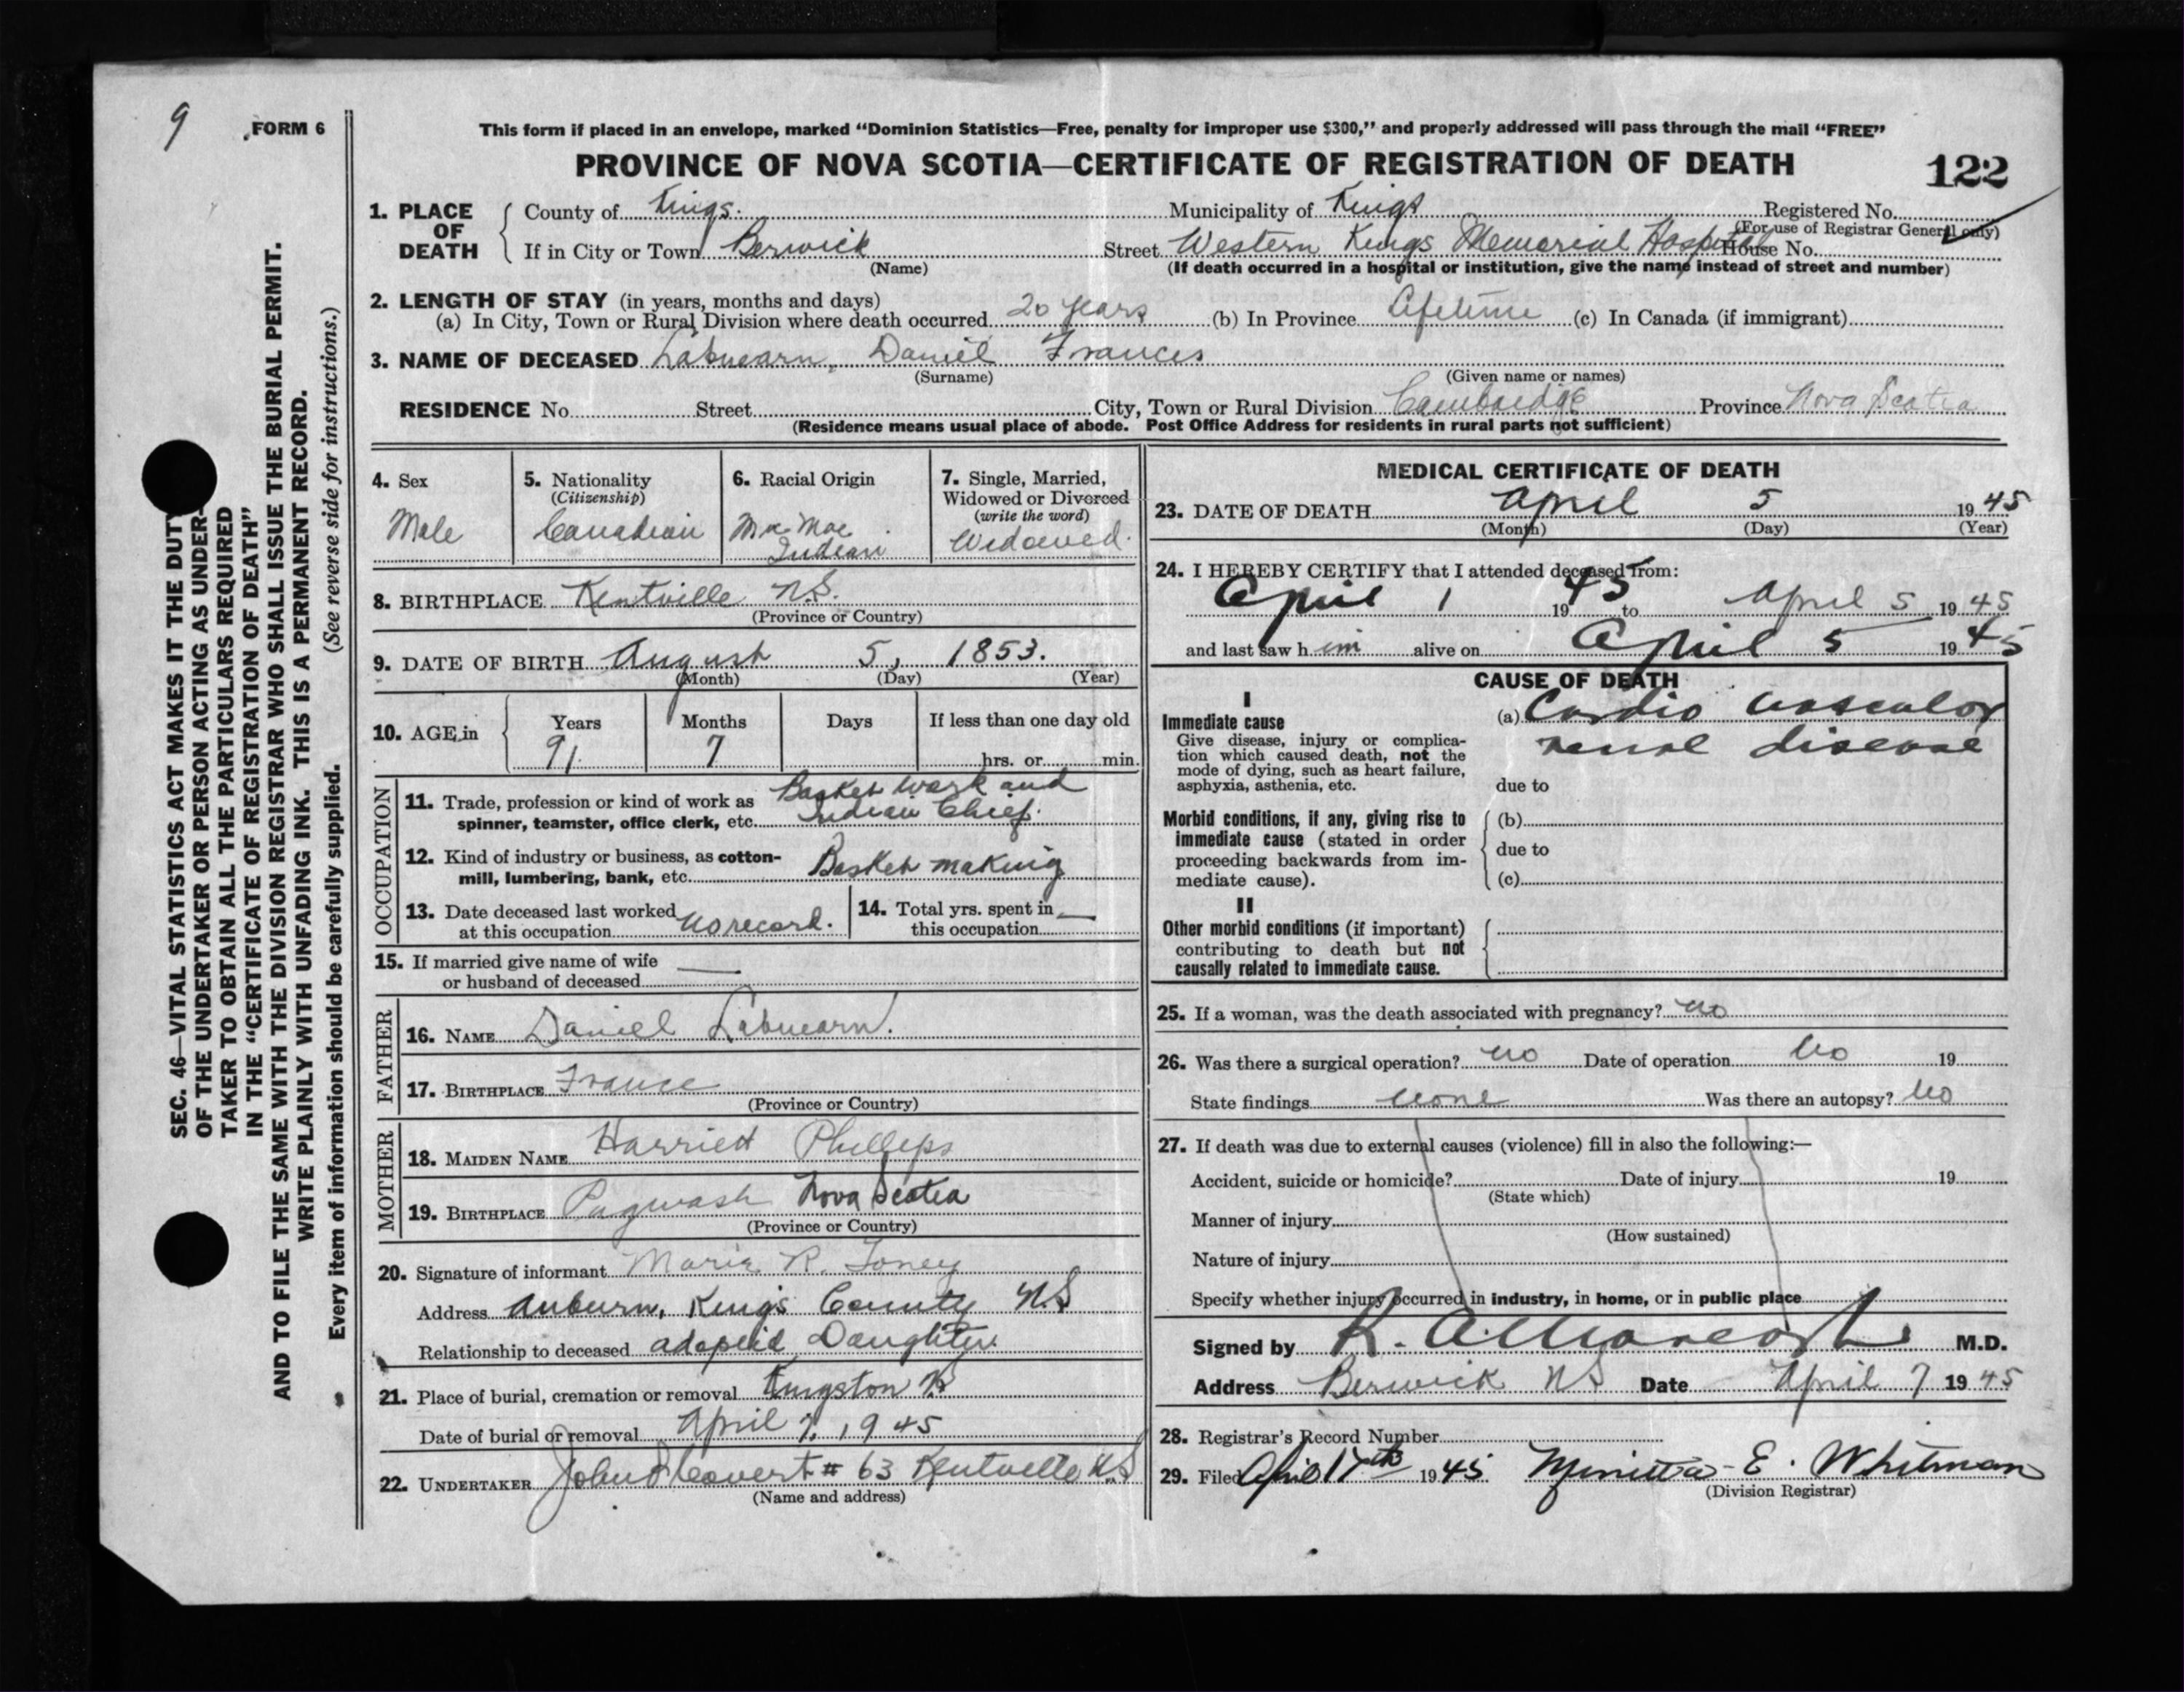 9
FORM 6
This form if placed in an envelope, marked “Dominion Statistics—Free, penalty for improper use $300,” and properly addressed will pass through the mail “FREE”
PROVINCE OF NOVA SCOTIA—CERTIFICATE OF REGISTRATION OF DEATH
122
1. PLACE OF DEATH
County of Kings. Municipality of Kings Registered No.
(For use of Registrar General only)
If in City or Town Berwick Street Western Kings Memorial Hospital House No.
(Name) (If death occurred in a hospital or institution, give the name instead of street and number)
2. LENGTH OF STAY (in years, months and days)
(a) In City, Town or Rural Division where death occurred 20 years (b) In Province Lifetime (c) In Canada (if immigrant)
3. NAME OF DECEASED Labnearn, Daniel Frances
(Surname) (Given name or names)
RESIDENCE No. Street City, Town or Rural Division Cambridge Province Nova Scotia
(Residence means usual place of abode. Post Office Address for residents in rural parts not sufficient)
4. Sex
Male
5. Nationality
(Citizenship)
Canadian
6. Racial Origin
Mic Mac
Indian
7. Single, Married,
Widowed or Divorced
(write the word)
Widowed.
8. BIRTHPLACE Kentville N.S.
(Province or Country)
9. DATE OF BIRTH August 5, 1853.
(Month) (Day) (Year)
10. AGE in Years Months Days If less than one day old
91 7 hrs. or min.
OCCUPATION
11. Trade, profession or kind of work as Basket Work and
spinner, teamster, office clerk, etc. Indian Chief.
12. Kind of industry or business, as cotton-
mill, lumbering, bank, etc. Basket making
13. Date deceased last worked
at this occupation no record.
14. Total yrs. spent in —
this occupation
15. If married give name of wife —
or husband of deceased
FATHER
16. NAME Daniel Labnearn.
17. BIRTHPLACE France
(Province or Country)
MOTHER
18. MAIDEN NAME Harriett Phillips
19. BIRTHPLACE Pugwash Nova Scotia
(Province or Country)
20. Signature of informant Marie R. Toney
Address Auburn, King's County N.S
Relationship to deceased adopted Daughter
21. Place of burial, cremation or removal Kingston
Date of burial or removal April 7, 1945
22. UNDERTAKER John Covert # 63 Kentville N.S
(Name and address)
MEDICAL CERTIFICATE OF DEATH
23. DATE OF DEATH April 5 1945
(Month) (Day) (Year)
24. I HEREBY CERTIFY that I attended deceased from:
April 1 1945 to April 5 1945
and last saw h im alive on April 5 1945
CAUSE OF DEATH
I
Immediate cause
Give disease, injury or complica-
tion which caused death, not the
mode of dying, such as heart failure,
asphyxia, asthenia, etc.
(a) Cardio vascular
renal disease
due to
Morbid conditions, if any, giving rise to
immediate cause (stated in order
proceeding backwards from im-
mediate cause).
(b)
due to
(c)
II
Other morbid conditions (if important)
contributing to death but not
causally related to immediate cause.
25. If a woman, was the death associated with pregnancy? no
26. Was there a surgical operation? no Date of operation no 19
State findings none Was there an autopsy? no
27. If death was due to external causes (violence) fill in also the following:—
Accident, suicide or homicide? Date of injury 19
(State which)
Manner of injury
(How sustained)
Nature of injury
Specify whether injury occurred in industry, in home, or in public place
Signed by M.D.
Address Berwick NS Date April 7 1945
28. Registrar's Record Number
29. Filed April 17th 1945 E. Whitman
(Division Registrar)
SEC. 46—VITAL STATISTICS ACT MAKES IT THE DUTY
OF THE UNDERTAKER OR PERSON ACTING AS UNDER-
TAKER TO OBTAIN ALL THE PARTICULARS REQUIRED
IN THE “CERTIFICATE OF REGISTRATION OF DEATH”
AND TO FILE THE SAME WITH THE DIVISION REGISTRAR WHO SHALL ISSUE THE BURIAL PERMIT.
WRITE PLAINLY WITH UNFADING INK. THIS IS A PERMANENT RECORD.
Every item of information should be carefully supplied. (See reverse side for instructions.)